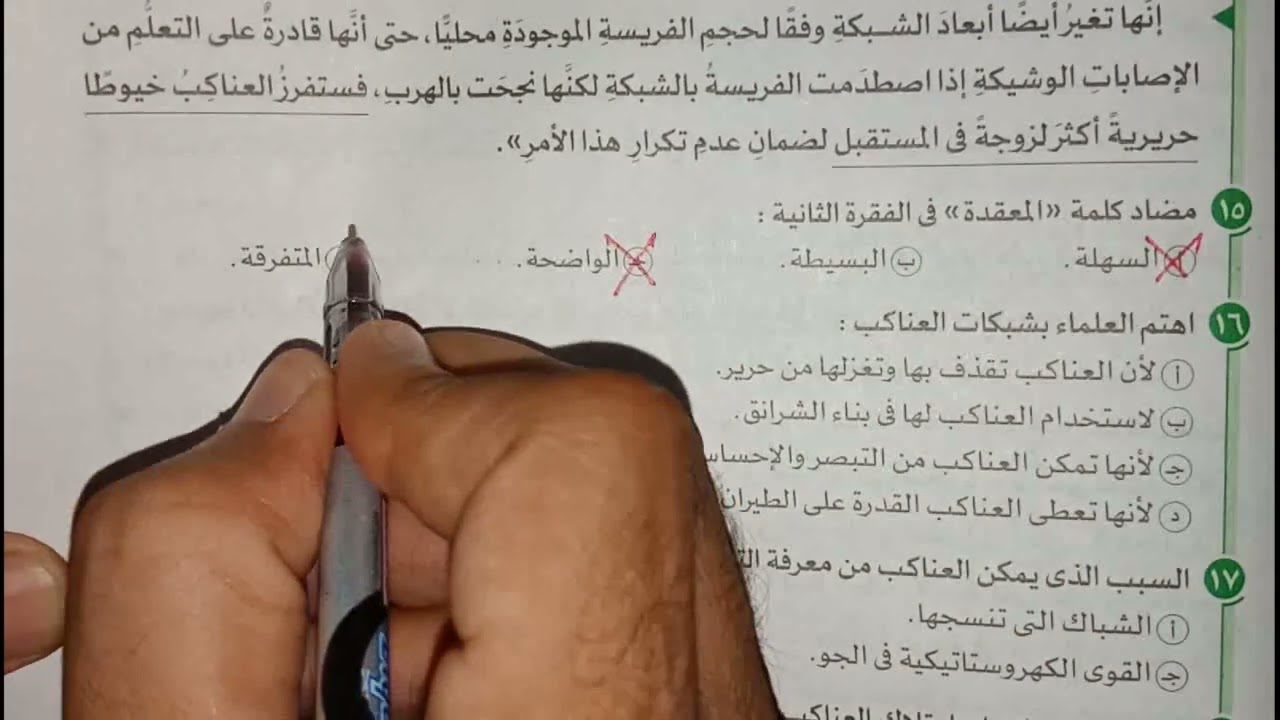 إنَّها تغيرُ أيضًا أبعادَ الشبكةِ وفقًا لحجمِ الفريسةِ الموجودَةِ محليًّا، حتى أنَّها قادرةٌ على التعلُّمِ من
الإصاباتِ الوشيكةِ إذا اصطدَمت الفريسةُ بالشبكةِ لكنَّها نجحَت بالهربِ، فستفرزُ العناكِبُ خيوطًا
حريريةً أكثرَ لزوجةً فى المستقبل لضمانِ عدمِ تكرارِ هذا الأمرِ».
١٥ مضاد كلمة «المعقدة» فى الفقرة الثانية :
أ السهلة. ب البسيطة. جـ الواضحة. المتفرقة.
١٦ اهتم العلماء بشبكات العناكب :
أ لأن العناكب تقذف بها وتغزلها من حرير.
ب لاستخدام العناكب لها فى بناء الشرانق.
جـ لأنها تمكن العناكب من التبصر والإحساس
د لأنها تعطى العناكب القدرة على الطيران
١٧ السبب الذى يمكن العناكب من معرفة
أ الشباك التى تنسجها.
جـ القوى الكهروستاتيكية فى الجو.